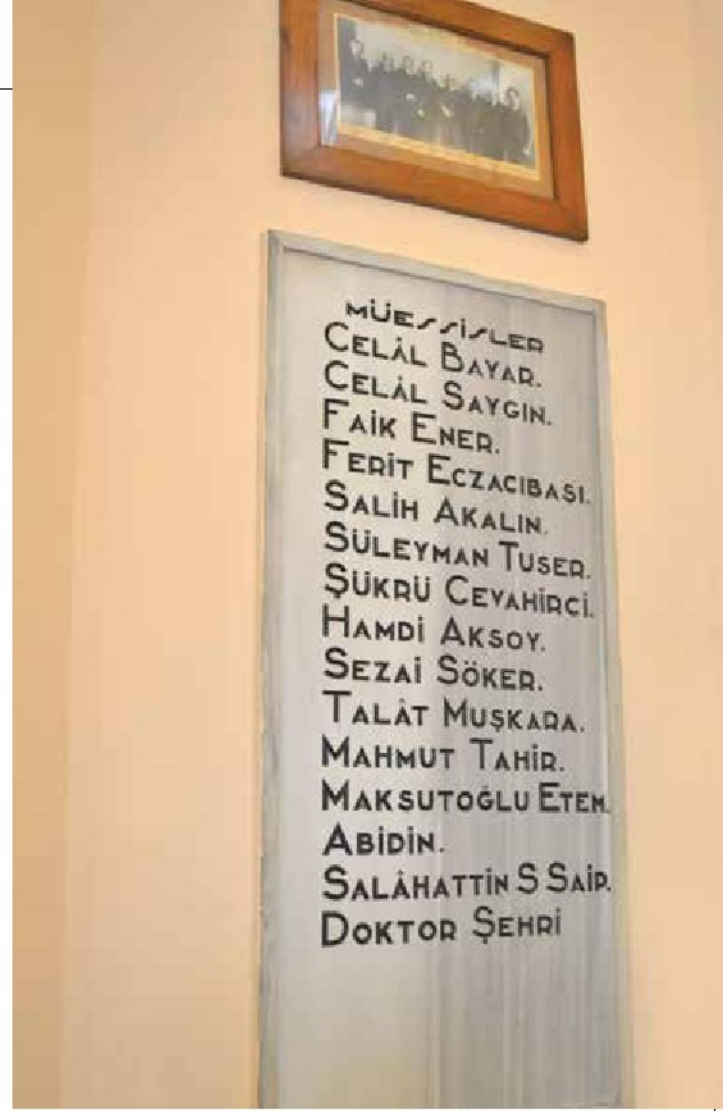 MÜESSİSLER
CELÂL BAYAR.
CELÂL SAYGIN.
FAİK ENER.
FERİT ECZACIBAŞI.
SALİH AKALIN.
SÜLEYMAN TUSER.
ŞÜKRÜ CEVAHİRCİ.
HAMDİ AKSOY.
SEZAİ SÖKER.
TALÂT MUŞKARA.
MAHMUT TAHİR.
MAKSUTOĞLU ETEM.
ABİDİN.
SALÂHATTİN S SAİP.
DOKTOR ŞEHRİ